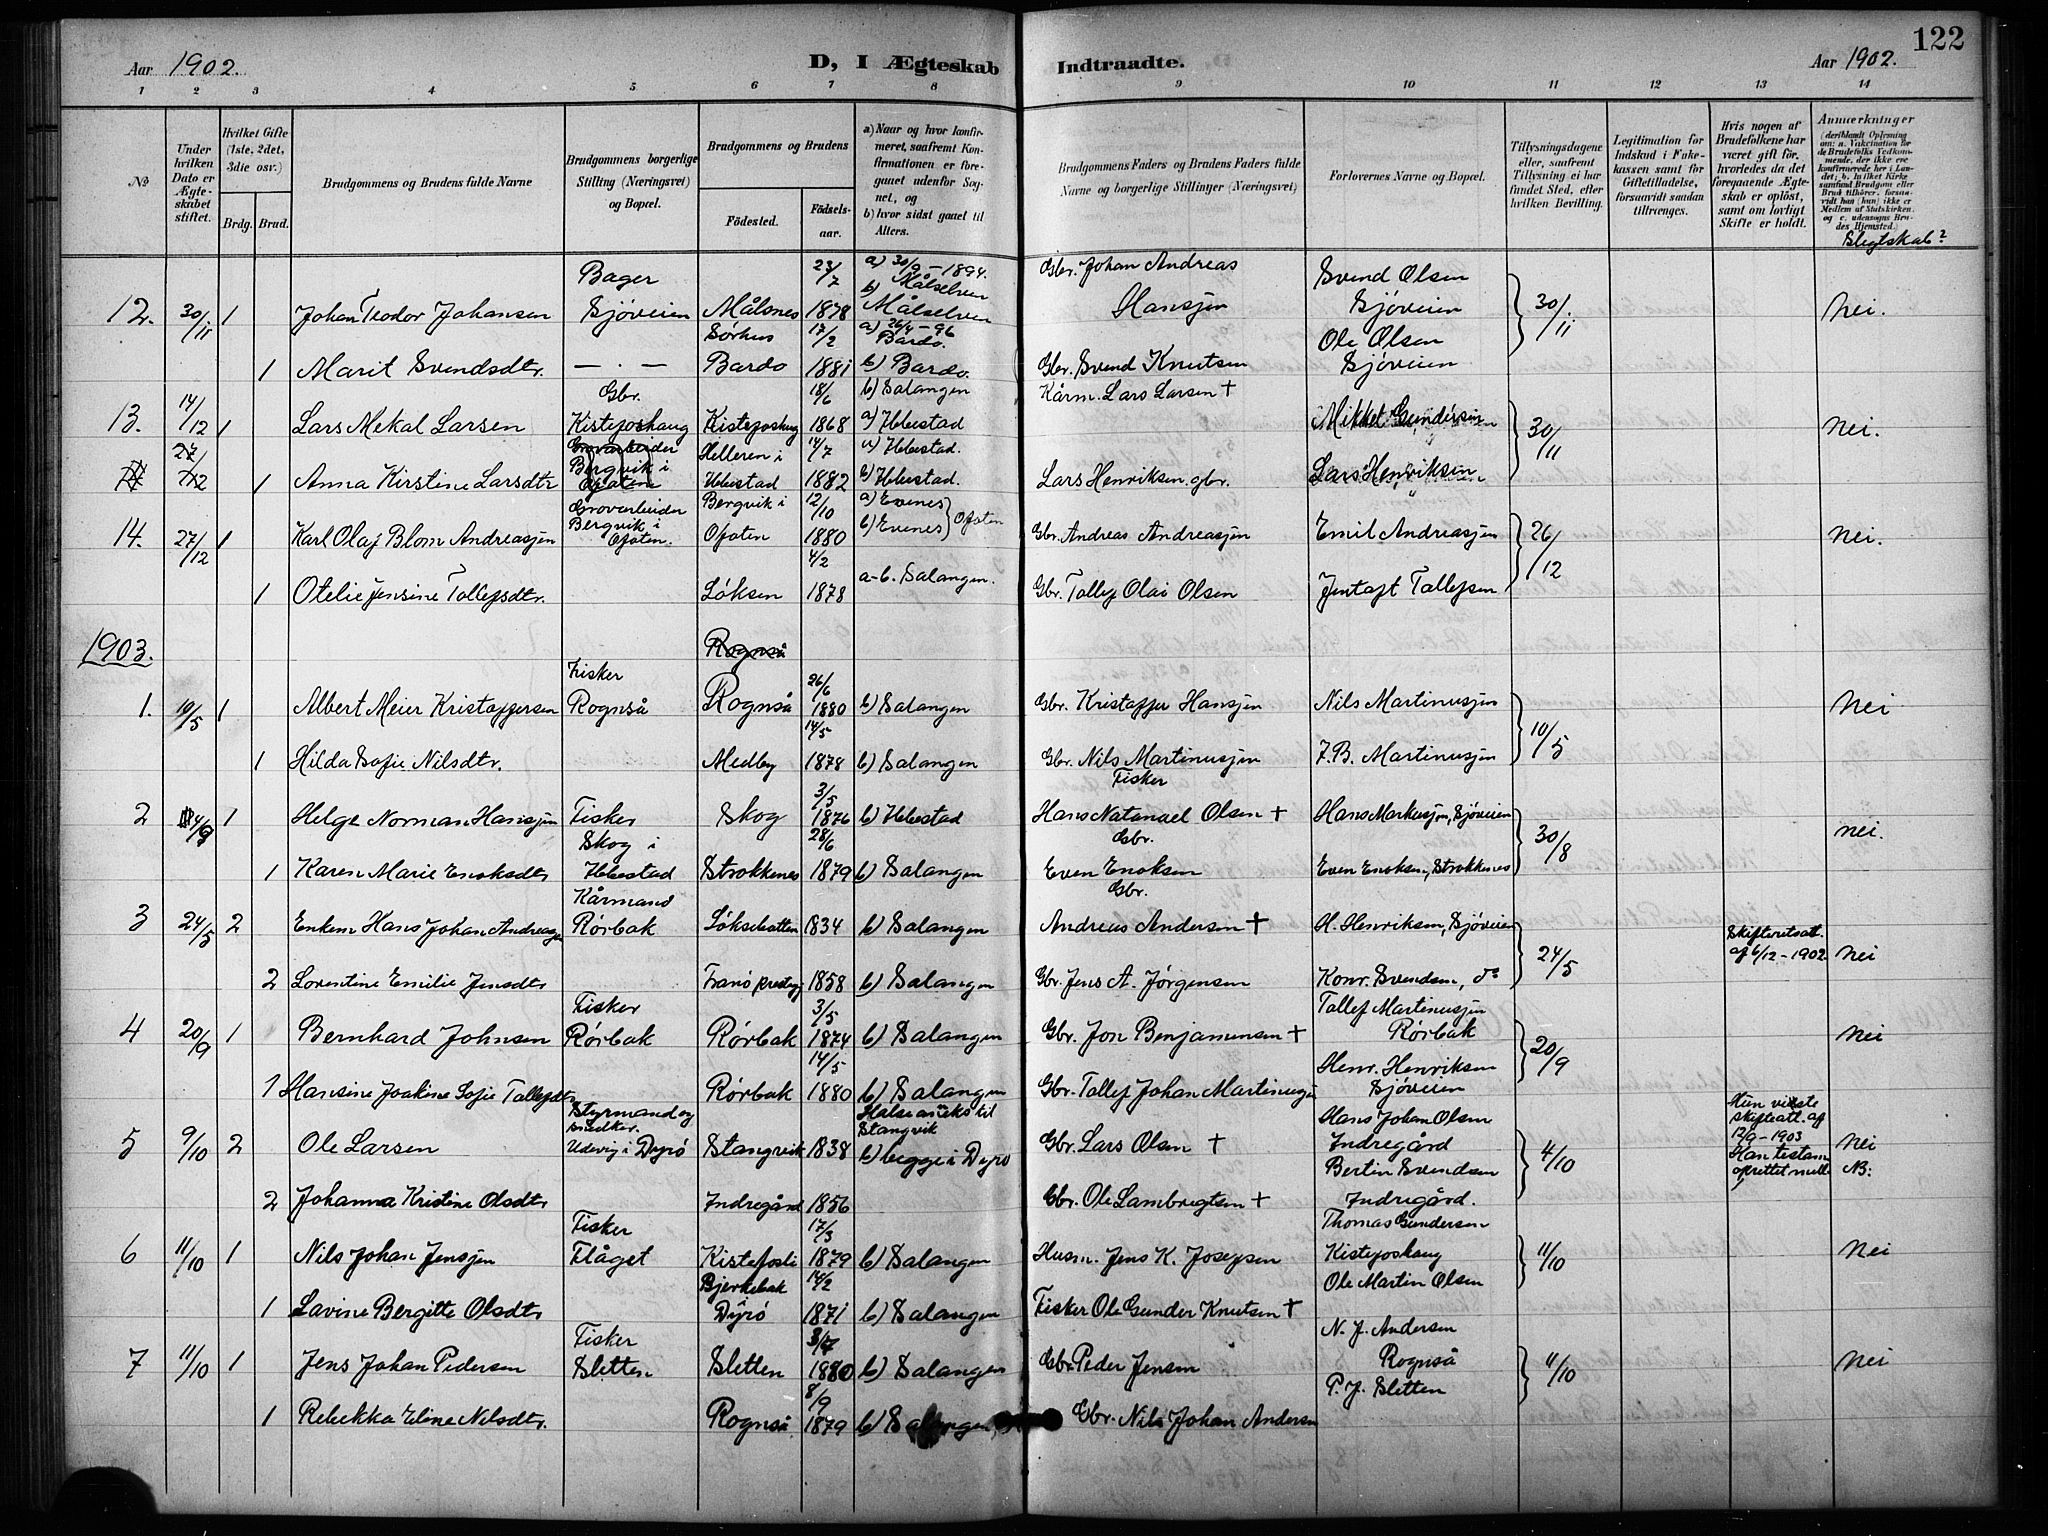 122
Aar 1902.
D, I Ægteskab Indtraadte.
Aar 1902.
1 2 3 4 5 6 7 8 9 10 11 12 13 14
No
Under hvilken Dato er Ægteskabet stiftet.
Hvilket Gifte (1ste, 2det, 3die osv.)
Brdg. Brud.
Brudgommens og Brudens fulde Navne
Brudgommens borgerlige Stilling (Næringsvei) og Bopæl.
Brudgommens og Brudens
Födested.
Födsels-aar.
a) Naar og hvor konfirmeret, saafremt Konfirmationen er foregaaet udenfor Sognet, og
b) hvor sidst gaaet til Alters.
Brudgommens Faders og Brudens Faders fulde Navne og borgerlige Stillinger (Næringsvei)
Forlovernes Navne og Bopæl.
Tillysningsdagene eller, saafremt Tillysning ei har fundet Sted, efter hvilken Bevilling.
Legitimation for Indskud i Enkekassen samt for Giftetilladelse, forsaavidt saadan tiltrænges.
Hvis nogen af Brudefolkene har været gift för, hvorledes da det foregaaende Ægteskab er oplöst, samt om lovligt Skifte er holdt.
Anmærkninger
Slegtskab?
12. 30/11 1 Johan Teodor Johansen Bager Sjøveien Målsnes 23/7 1878 a) 30/9-1894. Målselven b) Målselven Gbr. Johan Andreas Hansen Svend Olsen Sjøveien 30/11 Nei.
1 Marit Svendsdtr. — . — Sørhus Bardo 17/2 1881 a) 26/4-96 Bardo. b) Bardo. Gbr. Svend Knutsen Ole Olsen Sjøveien
13. 14/12 1 Lars Mekal Larsen Gbr. Kistefoshaug Kistefoshaug 18/6 1868 b) Salangen a) Ibbestad Kårm. Lars Larsen † Mikkel Gundersen 30/11 Nei.
1 Anna Kirstine Larsdtr Helleren i Ibbestad 14/7 1882 a) Ibbestad. b) Ibbestad. Lars Henriksen gbr. Lars Henriksen
14. 27/12 1 Karl Olaf Blom Andreassen Grovarbeider Bergvik i Ofoten. Bergvik i Ofoten 12/10 1880 a) Evenes b) Evenes } Ofoten Gbr. Andreas Andreassen Emil Andreassen 26/12 Nei.
1 Otelie Jensine Tollefsdtr. Løksen 4/2 1878 a-b. Salangen. Gbr. Tollef Olai Olsen Jentoft Tollefsen
1903.
Rognså
1. 10/5 1 Albert Meier Kristoffersen Fisker Rognså Rognså 26/6 1880 b) Salangen Gbr. Kristoffer Hansen Nils Martinussen 10/5 Nei
1 Hilda Sofie Nilsdtr. Medby 14/5 1878 b) Salangen Gbr. Nils Martinussen J. B. Martinussen
2 4/9 1 Helge Norman Hanssen Fisker Skog i Ibbestad Skog 3/5 1876 b) Ibbestad Fisker Hans Natanael Olsen † Hans Markussen, Sjøveien 30/8 nei.
1 Karen Marie Enoksdtr Strokkenes 28/6 1879 b) Salangen Gbr. Even Enoksen Even Enoksen, Strokkenes
3 24/5 2 Enkem Hans Johan Andreassen Kårmand Rørbak Løksebotten 1834 b) Salangen Gbr. Andreas Andersen † H. Henriksen, Sjøveien 24/5 Skifteretsatt. af 6/12-1902 Nei
2 Lorentine Emilie Jensdtr Tranø prestegj 1858 b) Salangen Gbr. Jens A. Jørgensen Konr. Svendsen, do
4 20/9 1 Bernhard Johnsen Fisker Rørbak Rørbak 3/5 1874 b) Salangen Gbr. Jon Benjaminsen † Tollef Martinussen Rørbak 20/9 Nei
1 Hansine Joakine Sofie Tollefsdtr Rørbak 14/5 1880 b) Salangen Gbr. Tollef Johan Martinussen Henr. Henriksen Sjøveien
5 9/10 2 Ole Larsen Styrmand og snedker. Udevig i Dyrø Stangvik 1838 Halse aneks til Stangvik b) begge i Dyrø Gbr. Lars Olsen † Hans Johan Olsen Indregård 4/10 Hun viste skifteatt. af 12/9-1903 Han testam. oprettet Nei NB:
2 Johanna Kristine Olsdtr Indregård 1856 Gbr. Ole Lambregtsen † Bertin Svendsen Indregård.
6 11/10 1 Nils Johan Jenssen Fisker Flåget Kistefosli 17/3 1879 b) Salangen Husm. Jens K. Josefsen Thomas Gundersen Kistefoshaug 11/10 Nei
1 Lavine Bergitte Olsdtr Bjerkebak Dyrø 14/2 1871 b) Salangen Fisker Ole Gunder Knutsen † Ole Martin Olsen
7 11/10 1 Jens Johan Pedersen Fisker Sletten Sletten 1880 b) Salangen Gbr Peder Jensen N. J. Andersen Rognså 11/10 Nei
1 Rebekka Eline Nilsdtr. Rognså 8/9 1879 b) Salangen Gbr. Nils Johan Andersen P. J. Sletten